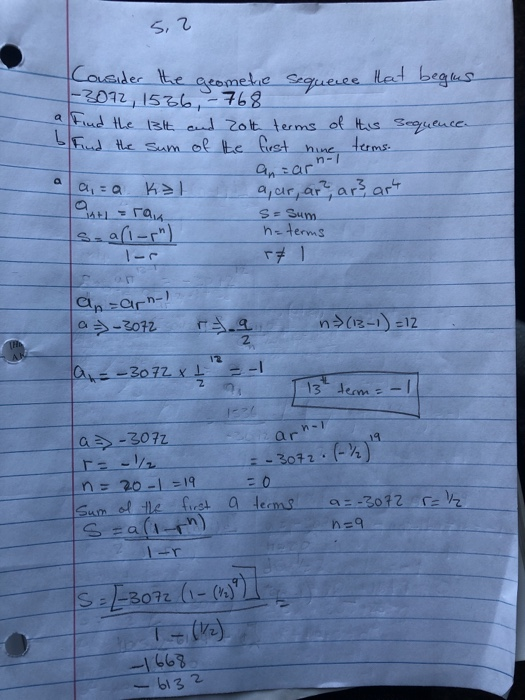 5.2
Consider the geometric sequence that begins
-3072, 1536, -768
a Find the 13th and 20th terms of this sequence.
b Find the sum of the first nine terms.
aₙ = arⁿ⁻¹
a a₁ = a K ≥ 1 a, ar, ar², ar³, ar⁴
aₖ₊₁ = raₖ S = Sum
S = a(1-rⁿ) n = terms
1-r r ≠ 1
aₙ = arⁿ⁻¹
a ⇒ -3072 r ⇒ -a/2 n ⇒ (13-1) = 12
aₙ = -3072 × 1/2 ¹² = -1
13th term = -1
a ⇒ -3072 arⁿ⁻¹
r = -1/2 = -3072 · (-1/2)¹⁹
n = 20-1 = 19 = 0
Sum of the first 9 terms a = -3072 r = 1/2
S = a(1-rⁿ) n = 9
1-r
S = [-3072 (1-(1/2)⁹)] =
1-(1/2)
-1668
-6132